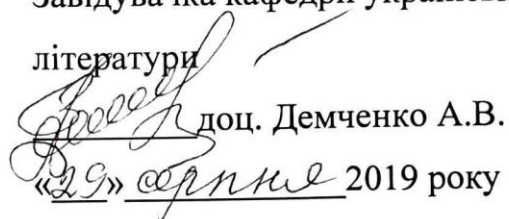 Завідувачка кафедри української
літератури
доц. Демченко А.В.
«29» серпня 2019 року